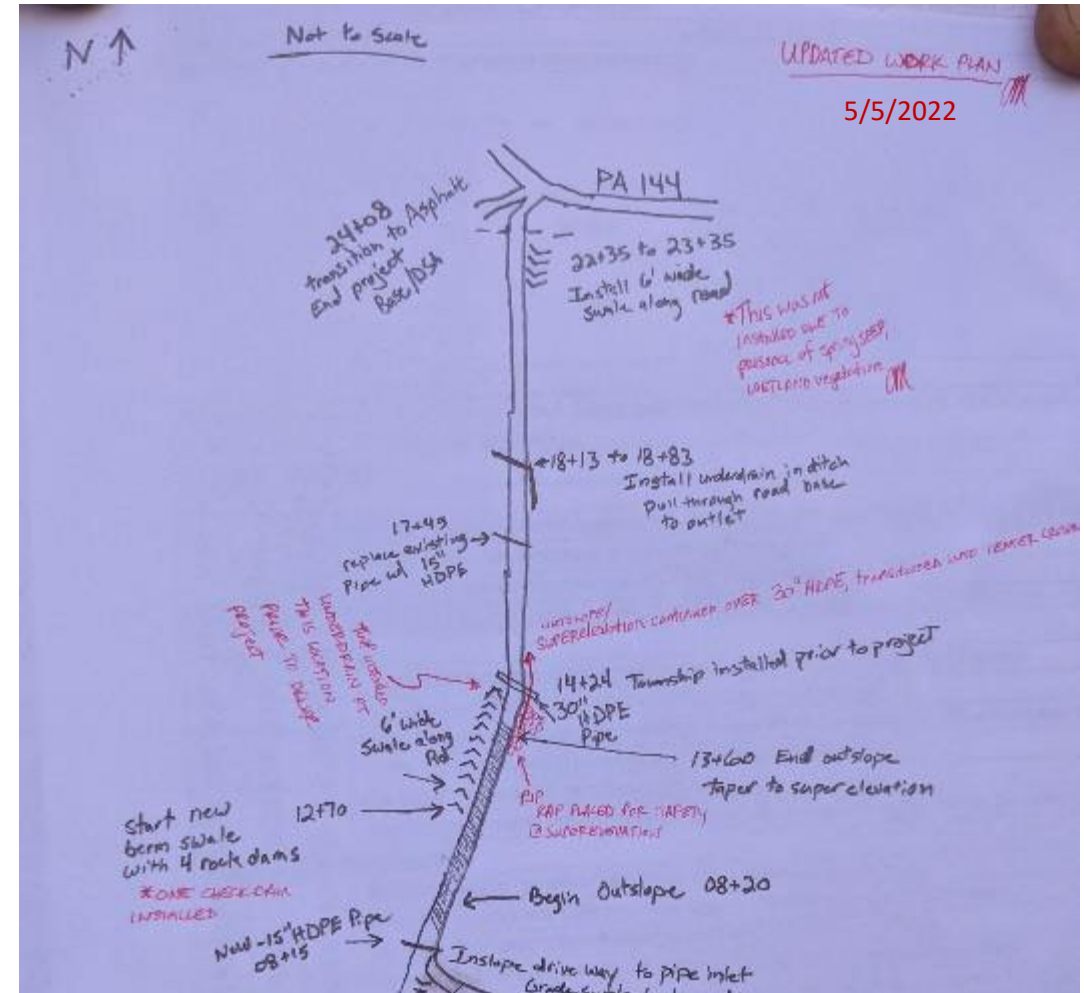 N
Not to Scale
UPDATED WORK PLAN
5/5/2022
PA 144
24+08
transition to Asphalt
End project
Base/DSA
22+35 to 23+35
Install 6' wide
Swale along road
*This was not
installed due to
presence of spring seep,
wetland vegetation
18+13 to 18+83
Install underdrain in ditch
Pull through road base
to outlet
17+45
replace existing
Pipe w/ 15"
HDPE
SUPERelevation continued over 30" HDPE, transitioned into center
UNDERDRAIN AT
THIS LOCATION
PRIOR TO
PROJECT
14+24 Township installed prior to project
30"
HDPE
Pipe
6' wide
Swale along
Rd
13+600 End outslope
taper to super elevation
RIP
RAP PLACED FOR SAFETY
@ SUPERELEVATION
12+70
Start new
berm swale
with 4 rock dams
*ONE CHECK DAM
INSTALLED
Begin Outslope 08+20
New-15" HDPE Pipe
08+15
Inslope drive way to pipe inlet